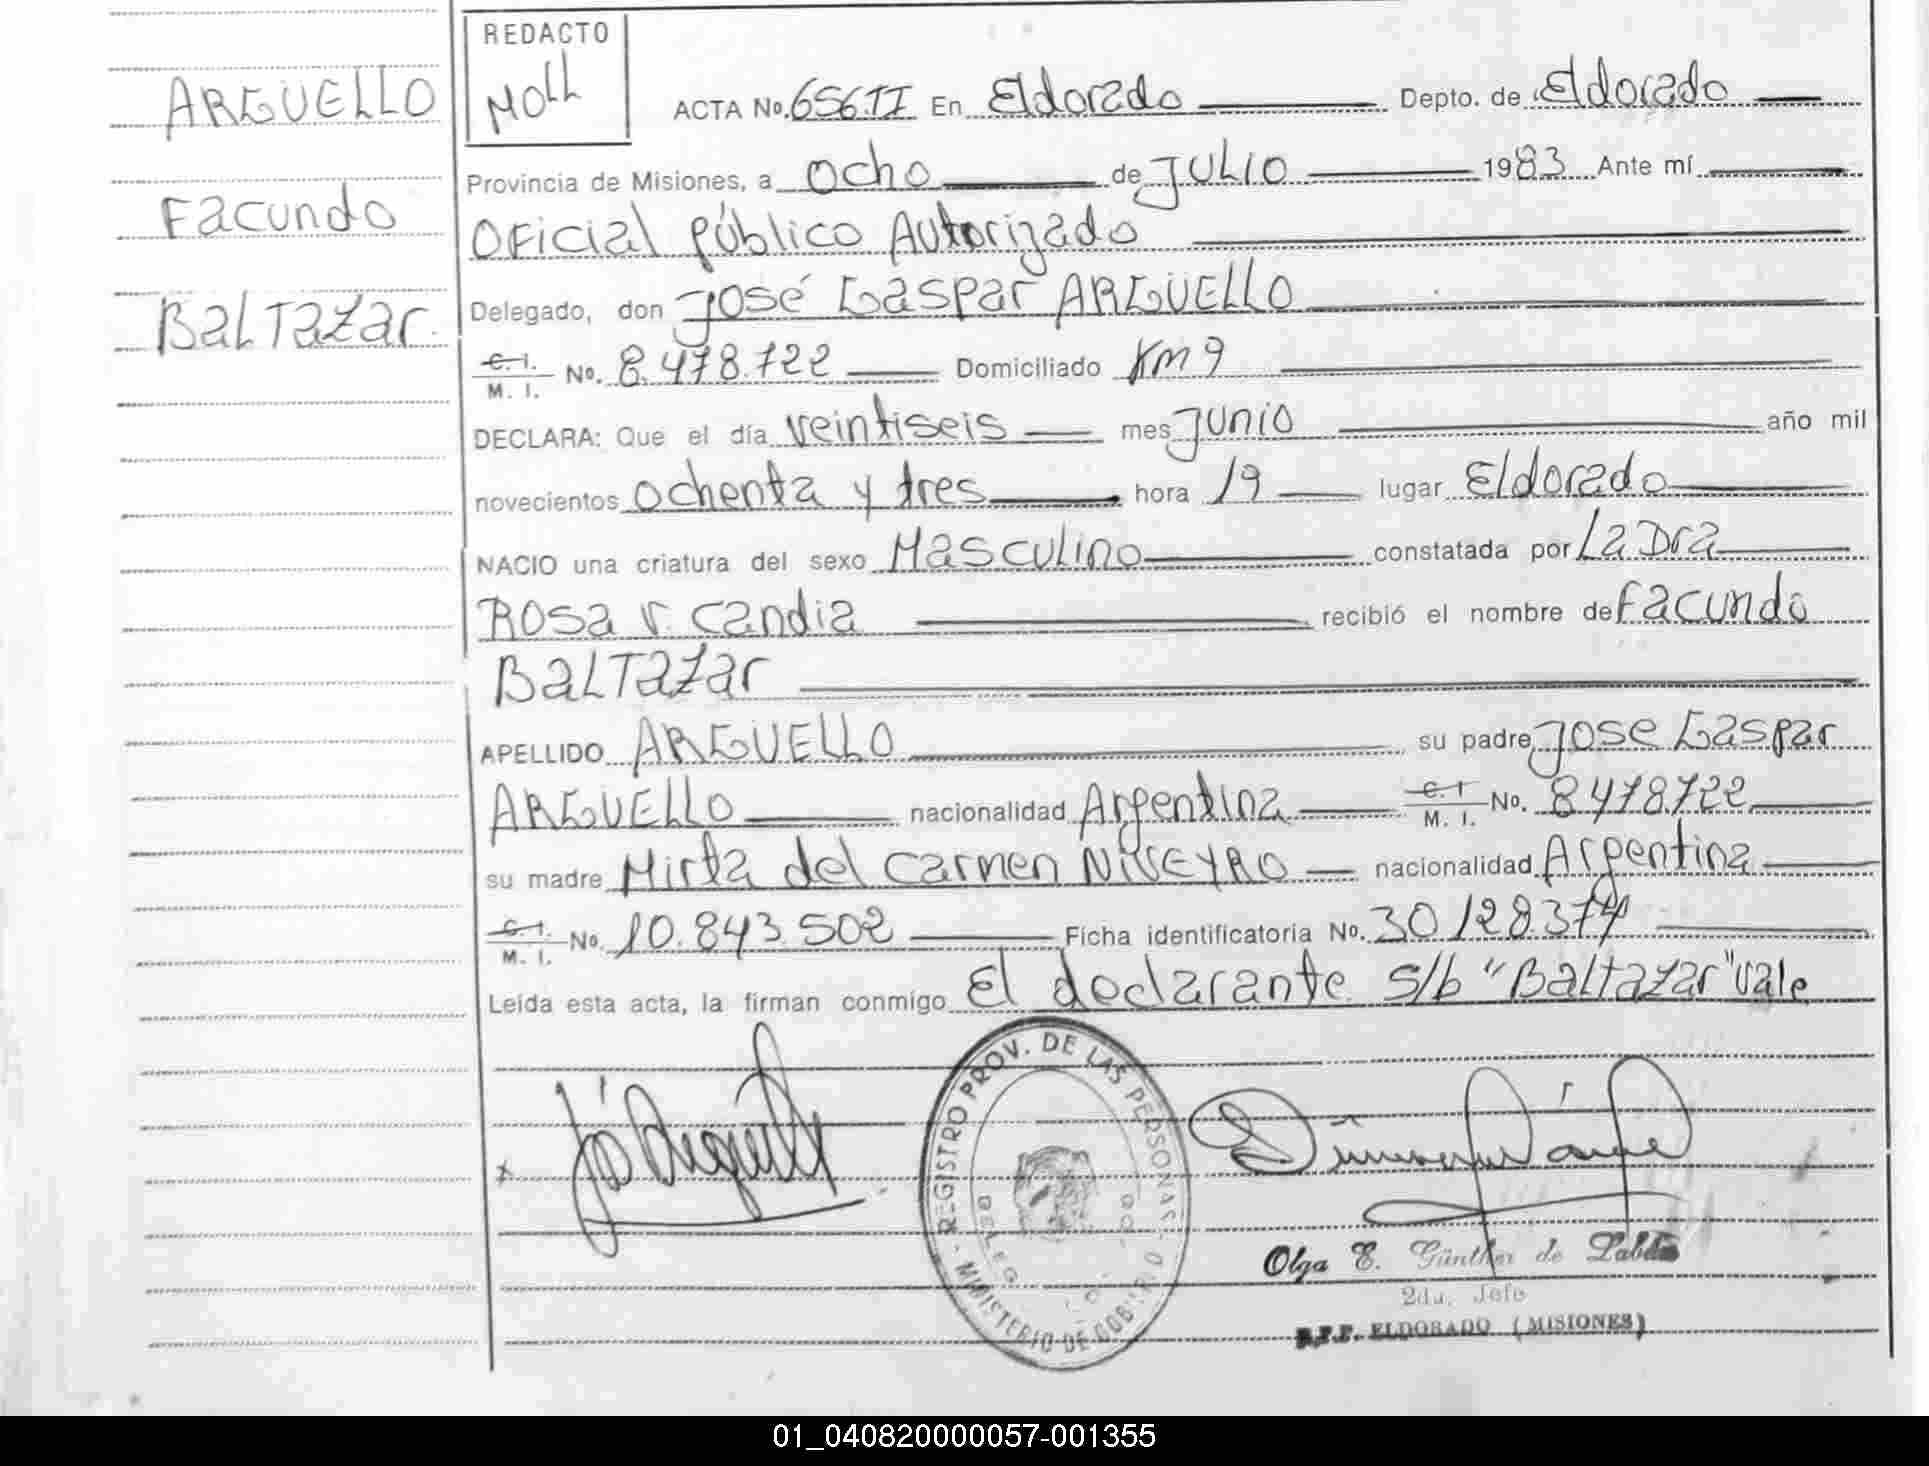 REDACTO
Moll
ARGÜELLO
Facundo
Baltazar.
ACTA No. 656.TI En Eldorado Depto. de Eldorado
Provincia de Misiones, a Ocho de Julio 1983 Ante mí
Oficial público Autorizado
Delegado, don José Gaspar ARGÜELLO
C. I. M. I. No. 8.478.722 Domiciliado Km 9
DECLARA: Que el día veintiseis mes Junio año mil
novecientos ochenta y tres hora 19 lugar Eldorado
NACIO una criatura del sexo Masculino constatada por La Dra
Rosa V. Candia recibió el nombre de Facundo
Baltazar
APELLIDO ARGÜELLO su padre José Gaspar
ARGÜELLO nacionalidad Argentina C. I M. I. No. 8.478.722
su madre Mirta del Carmen NIVEYRO nacionalidad Argentina
C. I. M. I. No. 10.843.502 Ficha identificatoria No. 30.128.374
Leída esta acta, la firman conmigo El declarante s/b "Baltazar" vale
REGISTRO PROV. DE LAS PERSONAS
MINISTERIO DE GOBIERNO
Olga E. Günther de
2da. Jefe
ELDORADO (MISIONES)
01_040820000057-001355